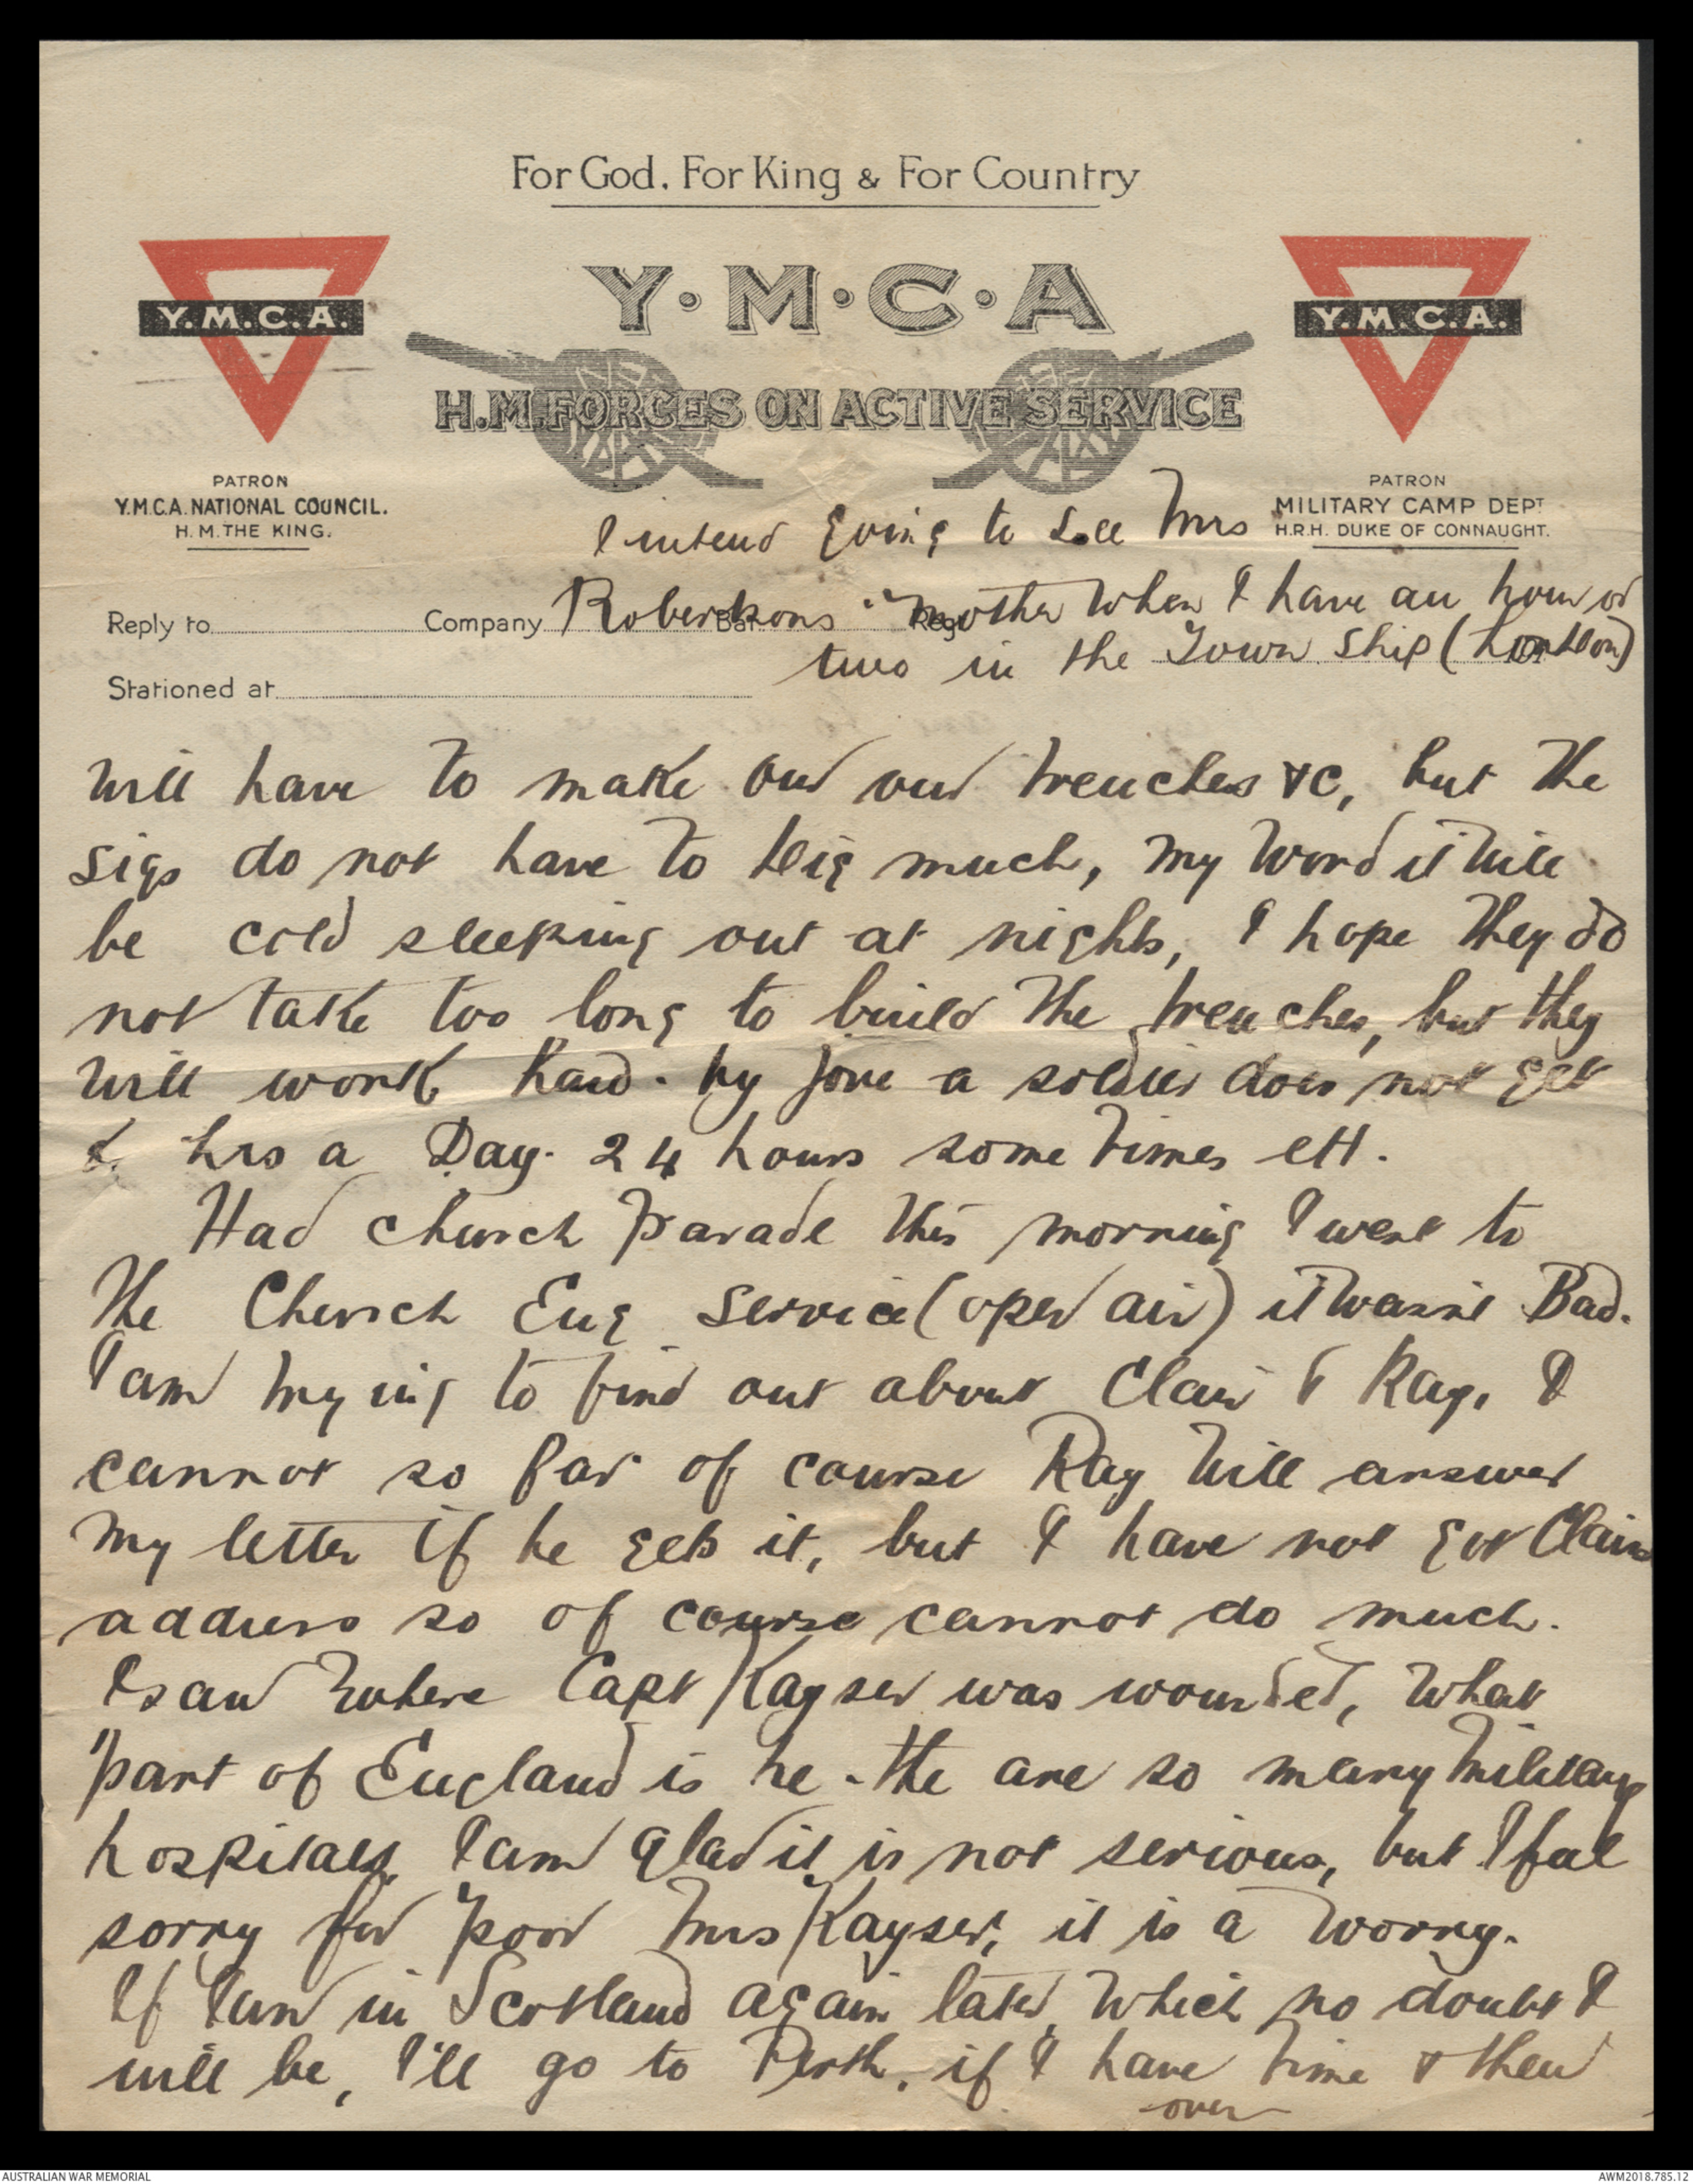 For God, For King & For Country
Y.M.C.A
H.M. FORCES ON ACTIVE SERVICE
Y.M.C.A.
Y.M.C.A.
PATRON
Y.M.C.A. NATIONAL COUNCIL.
H.M. THE KING.
PATRON
MILITARY CAMP DEPT
H.R.H. DUKE OF CONNAUGHT.
I intend going to see Mrs
Robertsons mother when I have an hour or
two in the Town ship (London)
Reply to Company Bat. Regt
Stationed at
will have to make our own trenches &c, but the
sigs do not have to dig much, my word it will
be cold sleeping out at nights, I hope they do
not take too long to build the trenches, but they
will work hard. by jove a soldier does not get
8 hrs a Day. 24 hours some times eH.
Had church Parade this morning I went to
the Church Eng Service (open air) it wasn't Bad.
I am trying to find out about Clair & Ray, I
cannot so far of course Ray will answer
my letter if he gets it, but I have not got Clairs
address so of course cannot do much.
I saw where Capt Kayser was wounded, what
part of England is he - the are so many military
hospitals, I am glad it is not serious, but I feel
sorry for poor Mrs Kayser, it is a worry.
If I am in Scotland again later, which no doubt I
will be, I'll go to Perth, if I have time & then
over
AUSTRALIAN WAR MEMORIAL
AWM2018.785.12